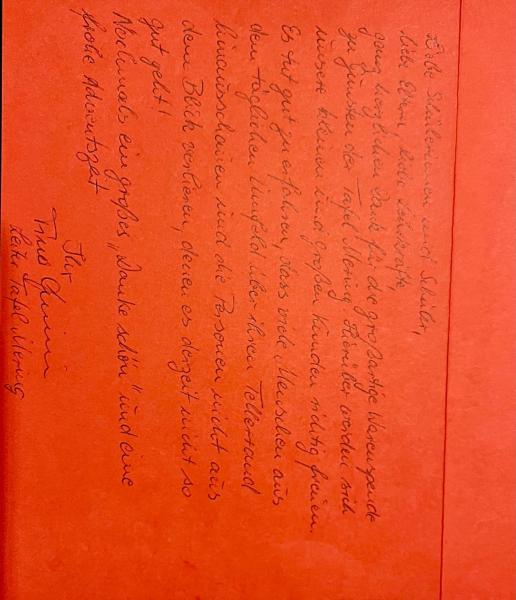 Liebe Schülerinnen und Schüler,
liebe Eltern, liebe Lehrkräfte,
ganz herzlichen Dank für die großartige Warenspende
zu Gunsten der Tafel Mering. Hierüber werden sich
unsere kleinen und großen Kunden richtig freuen.
Es tut gut zu erfahren, dass viele Menschen aus
dem täglichen Umfeld über ihren Tellerrand
hinausschauen und die Personen nicht aus
dem Blick verlieren, denen es derzeit nicht so
gut geht!
Nochmals ein großes „Danke schön" und eine
frohe Adventszeit
Ihr
Leiter Tafel Mering